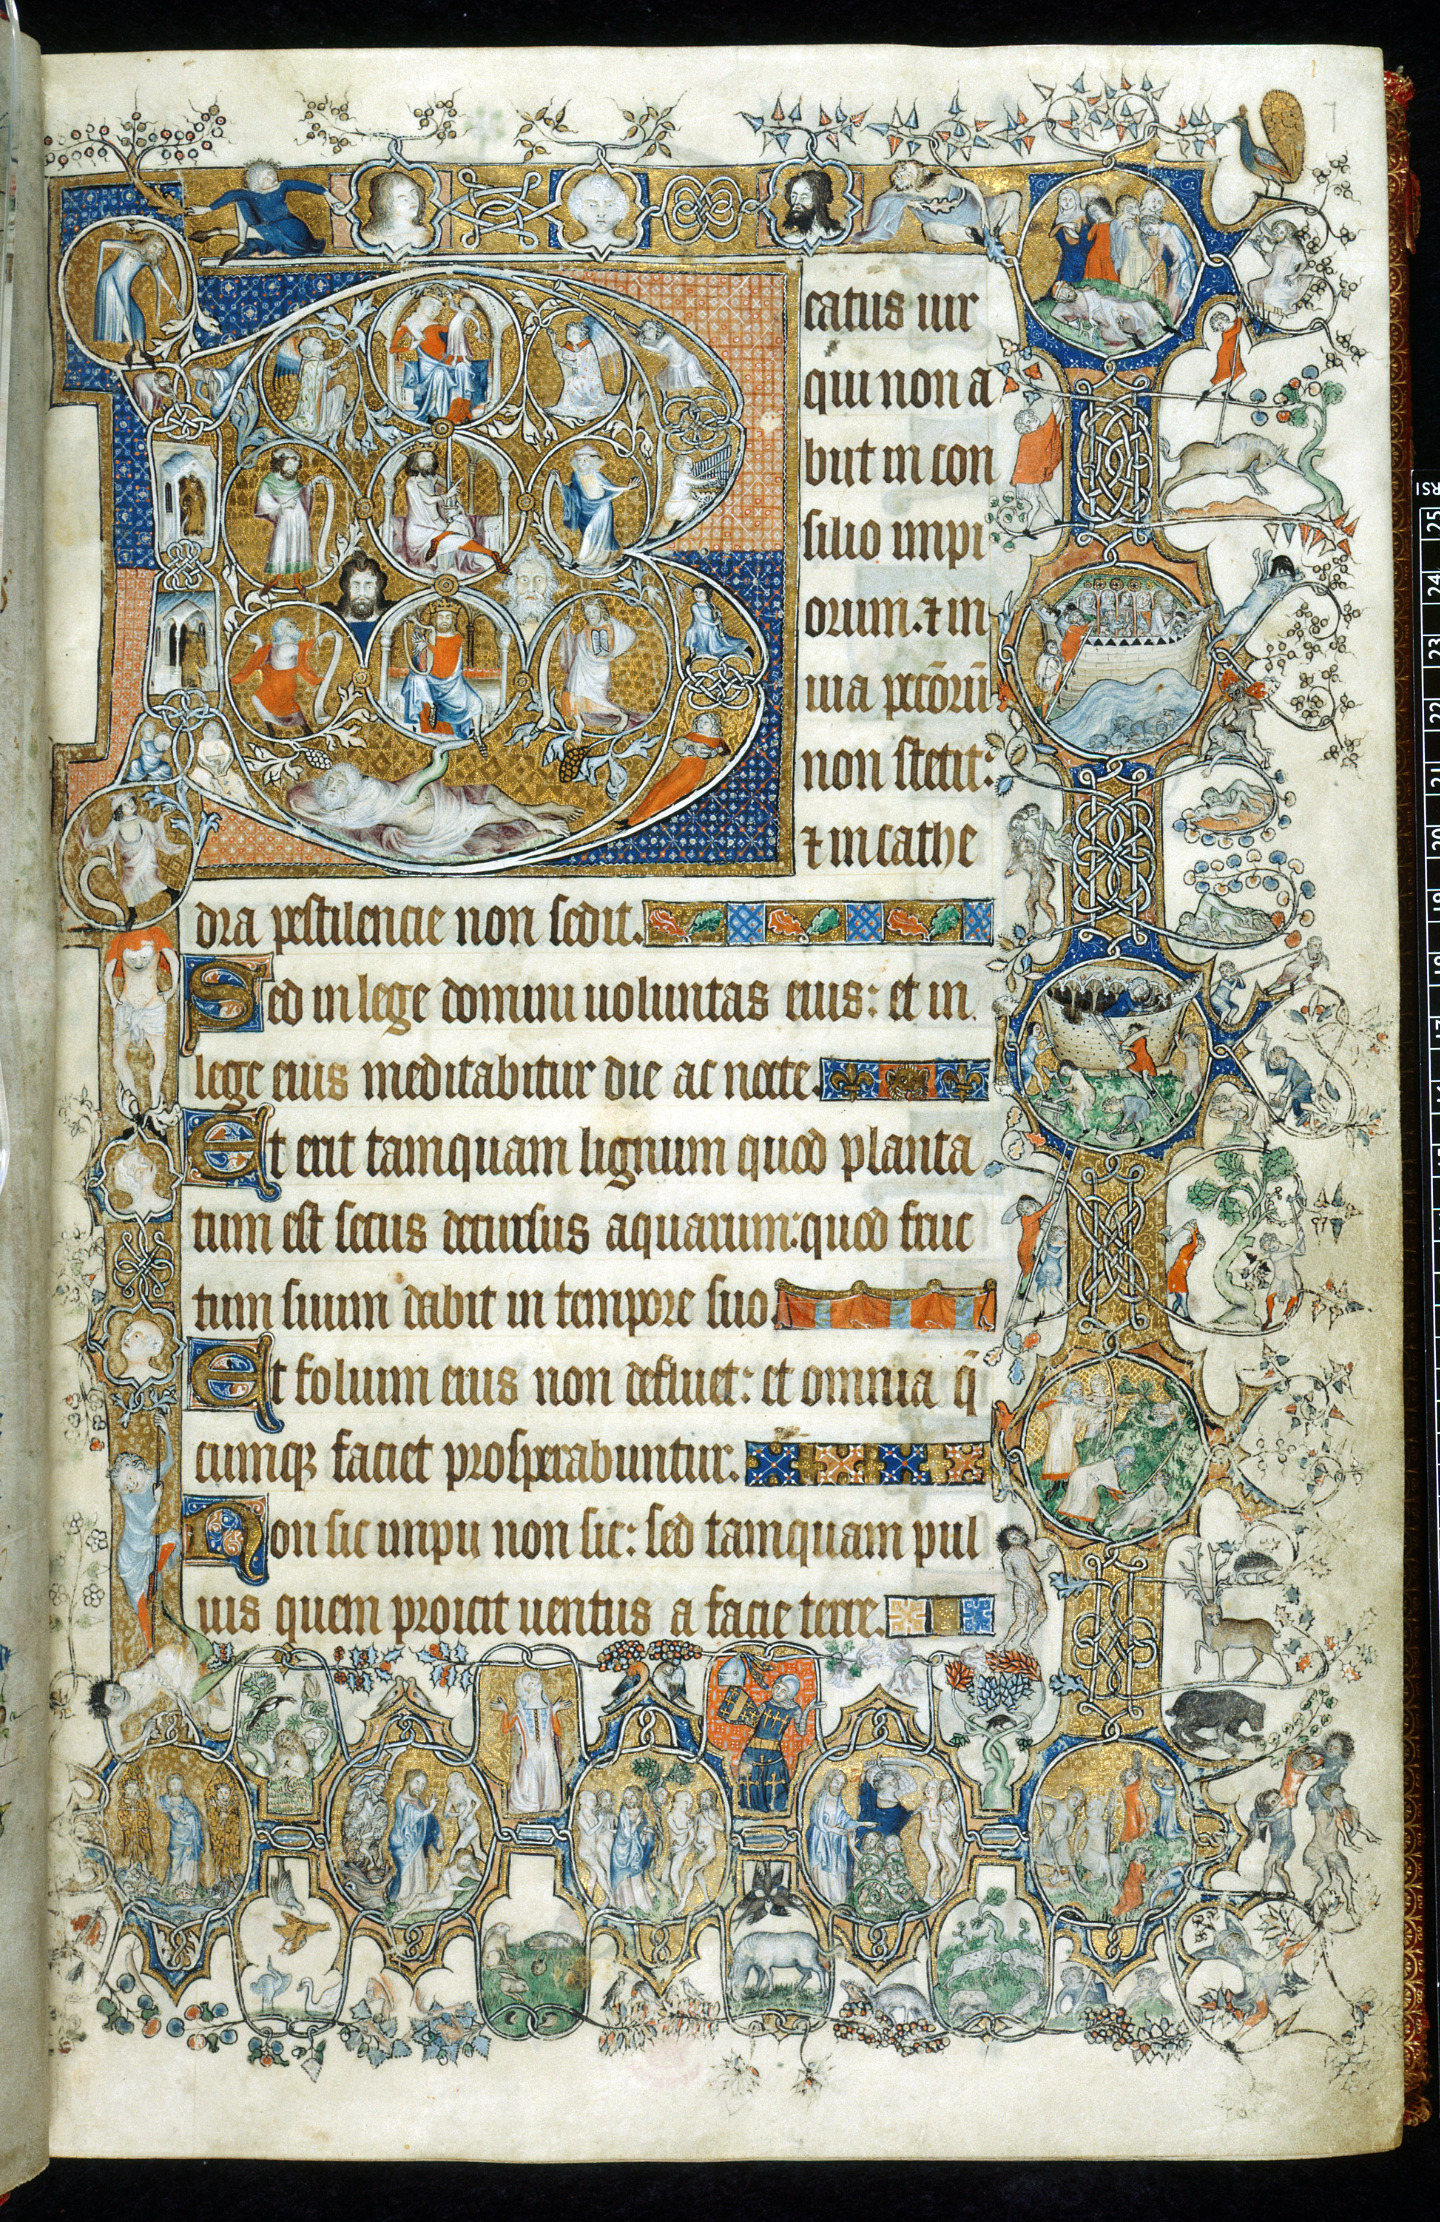 B
catus uir
qui non a
biit in con
silio impi
orum. ⁊ in
uia pctōrū
non stetit:
⁊ in cathe
dra pestilencie non sedit.
Sed in lege domini uoluntas eius: et in
lege eius meditabitur die ac nocte.
Et erit tamquam lignum quod planta
tum est secus decursus aquarum: quod fruc
tum suum dabit in tempore suo.
Et folium eius non defluet: et omnia q̄
cumqꝫ faciet prosperabuntur.
Non sic impii non sic: sed tamquam pul
uis quem proicit uentus a facie terre.
7
25
24
23
22
21
20
19
18
17